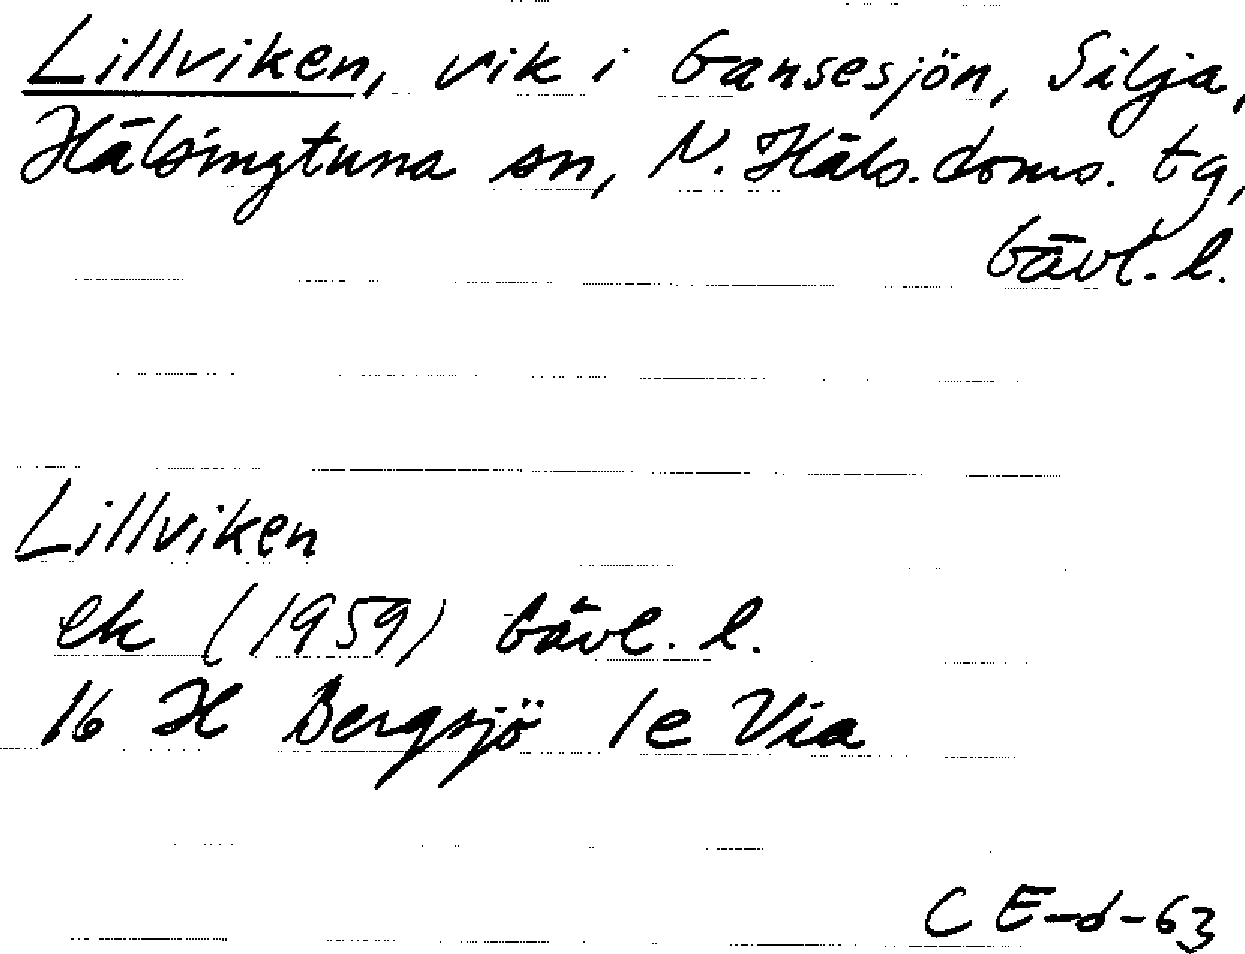 Lillviken, vik i Gansesjön, Silja,
Hälsingtuna sn, N. Häls. doms. tg,
Gävl. l.
Lillviken
ek (1959) Gävl. l.
16 H Bergsjö 1e Via
C E-d-63